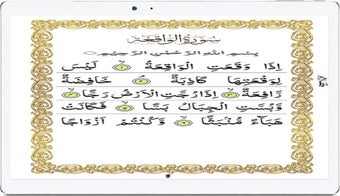 سُورَةُ الوَاقِعَة
بِسْمِ اللهِ الرَّحْمٰنِ الرَّحِيْمِ
اِذَا وَقَعَتِ الْوَاقِعَةُ ۙ۝۱ لَيْسَ
لِوَقْعَتِهَا كَاذِبَةٌ ۘ۝۲ خَافِضَةٌ
رَّافِعَةٌ ۙ۝۳ اِذَا رُجَّتِ الْاَرْضُ رَجًّا ۙ۝۴
وَّبُسَّتِ الْجِبَالُ بَسًّا ۙ۝۵ فَكَانَتْ
هَبَآءً مُّنْۢبَثًّا ۙ۝۶ وَّكُنْتُمْ اَزْوَاجًا